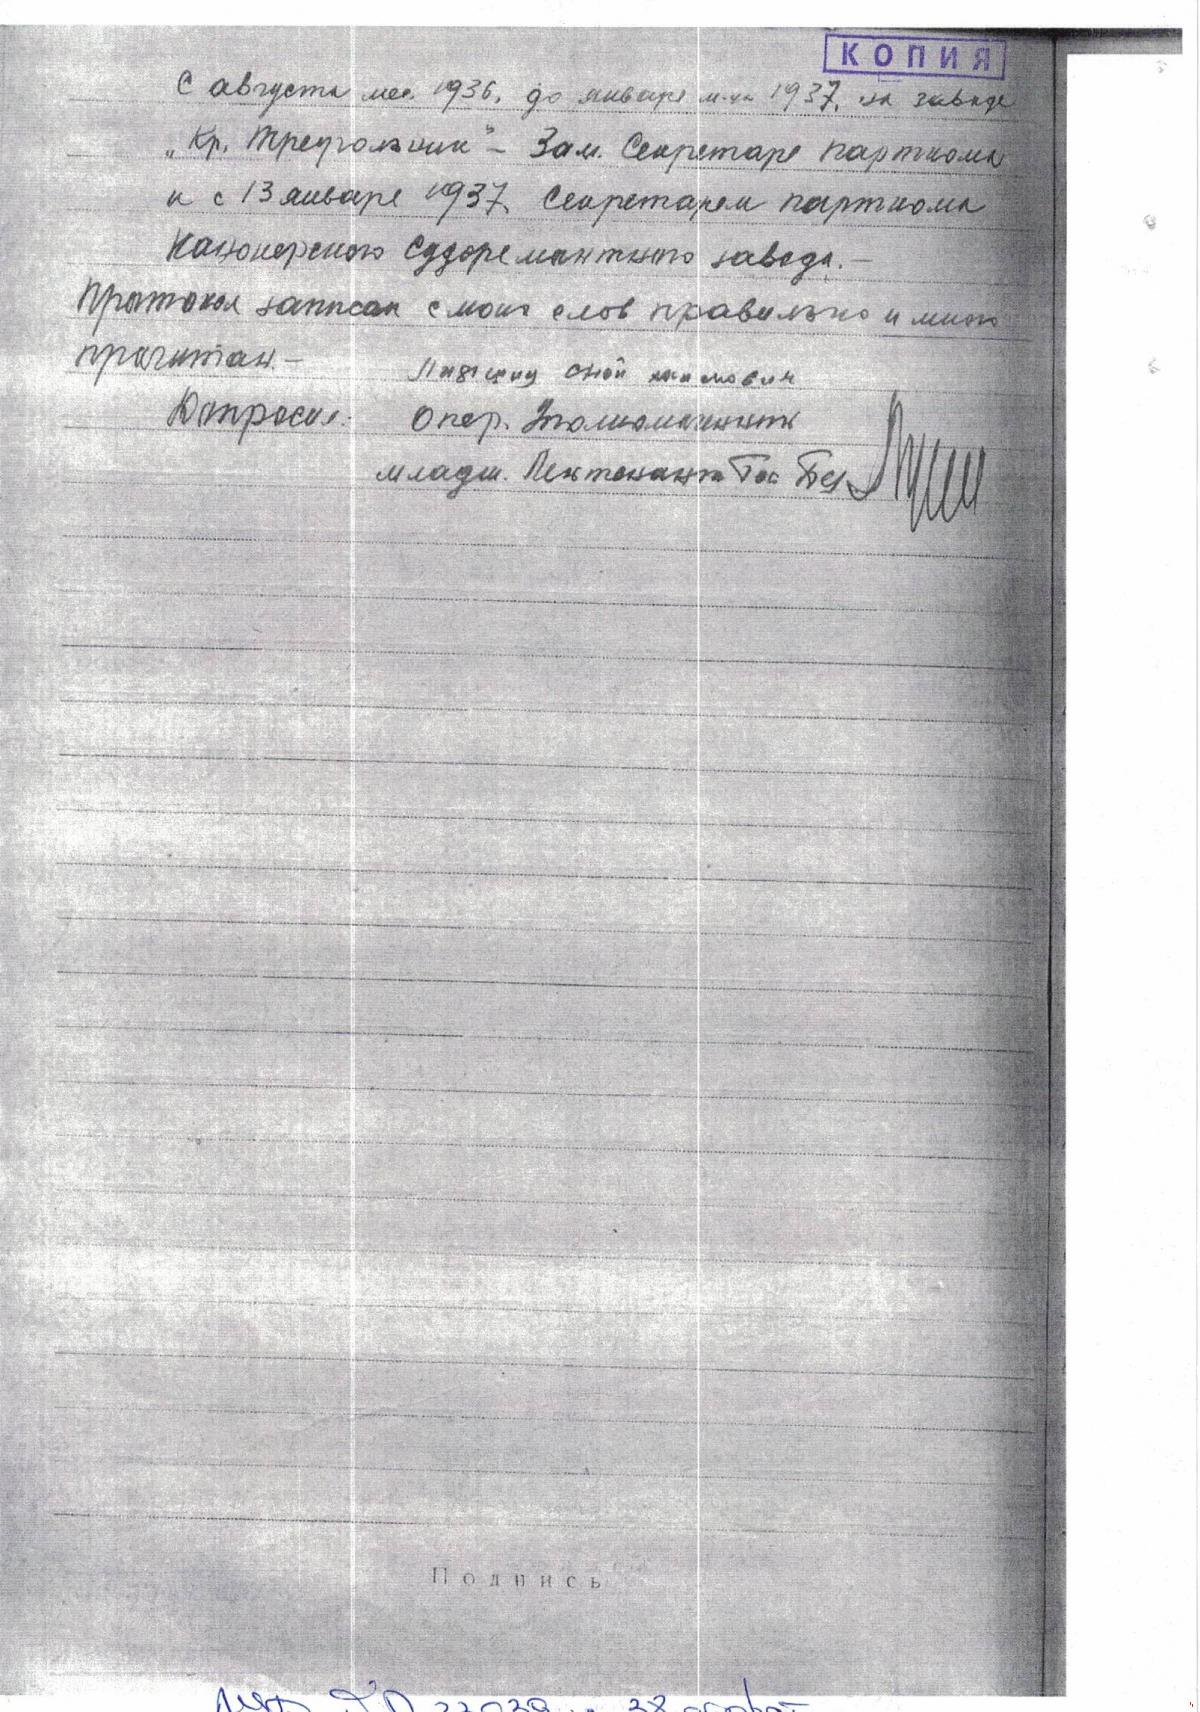 КОПИЯ
С августа мес. 1936. до январе м-ца 1937. на заводе
„Кр. Треугольник" – Зам. Секретаре парткома
и с 13 январе 1937. Секретарем парткома
Канонерского Судоремонтного завода. –
Протокол записан с моих слов правильно и мною
прочитан. –
Допросил: Опер. Уполномоченный
младш. Лейтенант Гос Без
Подпись